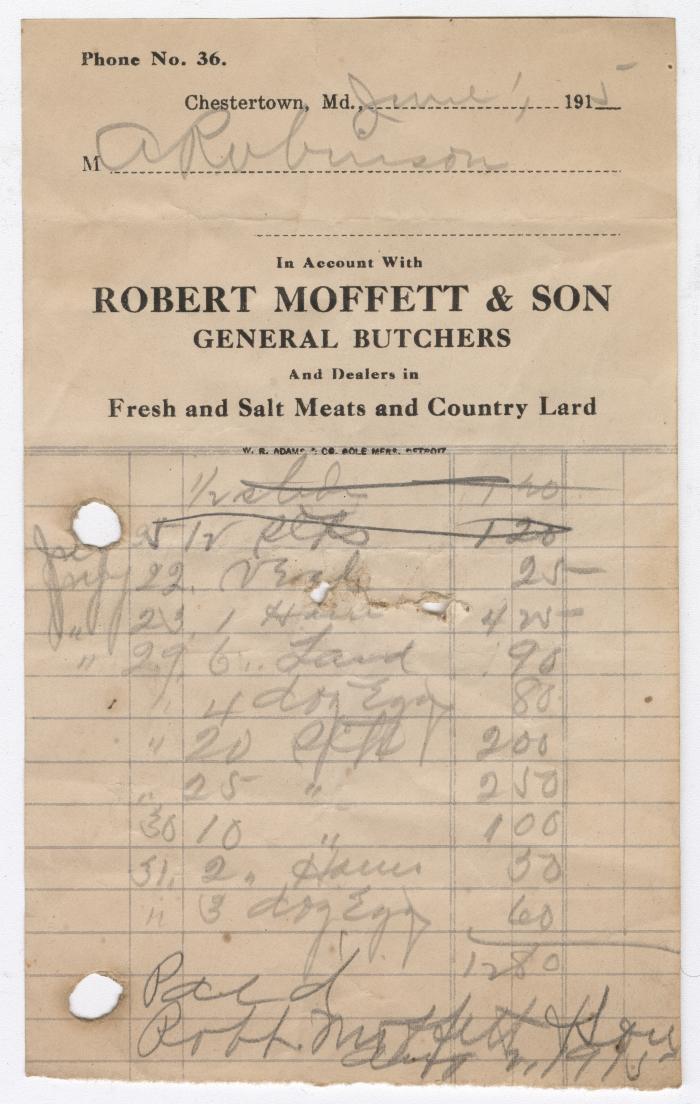 Phone No. 36.
Chestertown, Md., June 1, 1915
M A Robinson
In Account With
ROBERT MOFFETT & SON
GENERAL BUTCHERS
And Dealers in
Fresh and Salt Meats and Country Lard
W. R. ADAMS & CO. SOLE MFRS. DETROIT
1/2 1 40
25 12 1 20
22 Veal 25
" 23 1 Ham 4 25
" 29 6 " Lard 90
" 4 doz Egg 80
" 20 2 00
" 25 " 2 50
30 10 " 1 00
31 2 " Ham 50
" 3 doz Egg 60
12 80
Paid
Robt. Moffett & Son
Aug 2, 1915